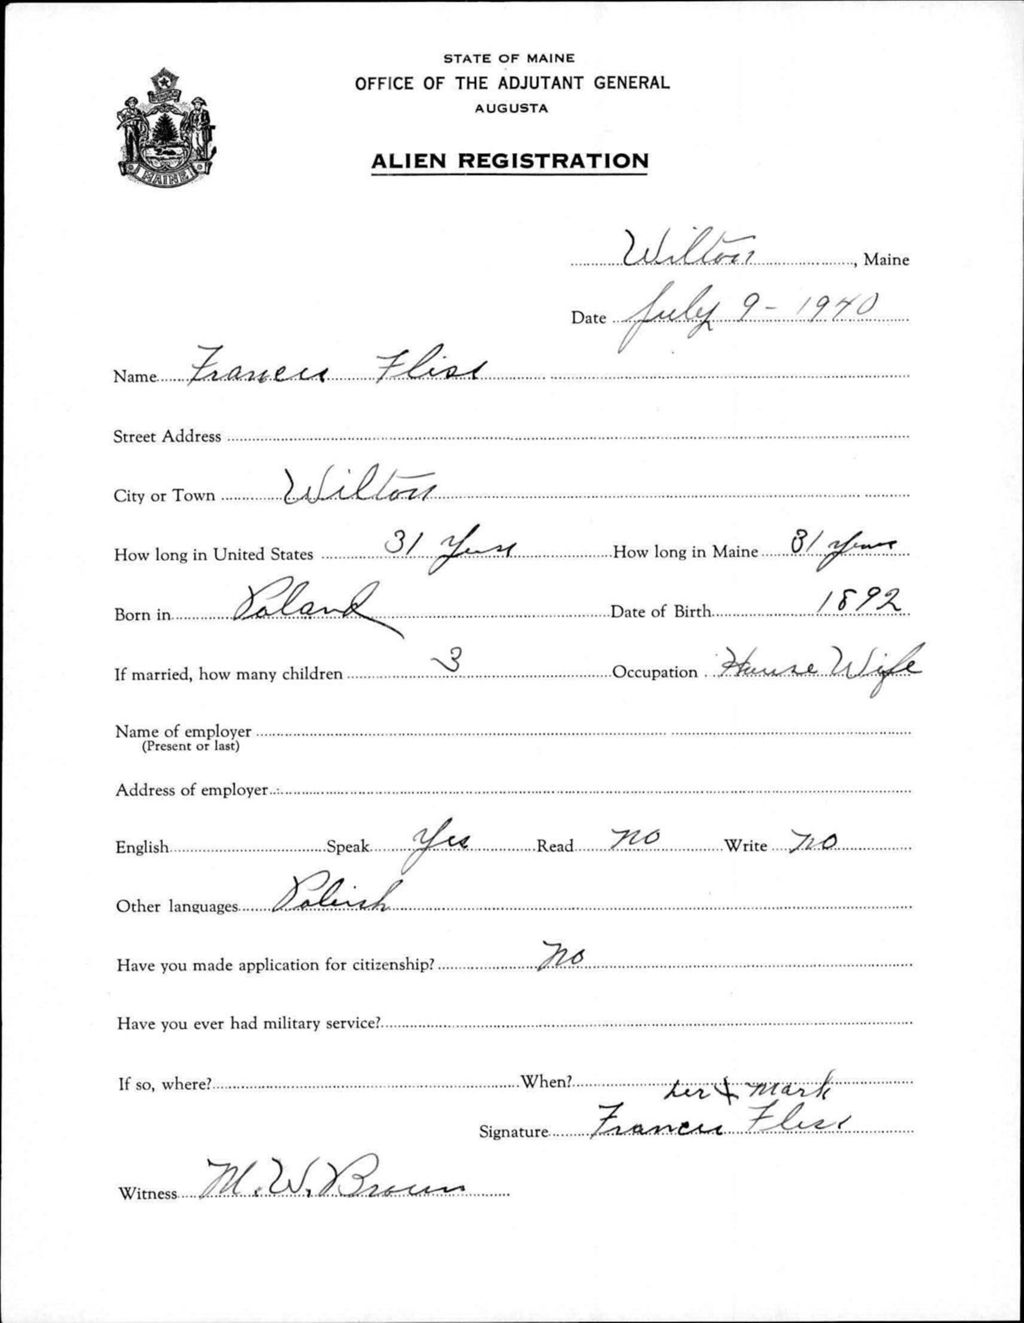 STATE OF MAINE
OFFICE OF THE ADJUTANT GENERAL
AUGUSTA
ALIEN REGISTRATION
MAINE
Wilton, Maine
Date July 9 - 1940
Name Francis Fliss
Street Address
City or Town Wilton
How long in United States 31 Years How long in Maine 31 years
Born in Poland Date of Birth 1892
If married, how many children 3 Occupation House Wife
Name of employer
(Present or last)
Address of employer
English Speak Yes Read no Write no
Other languages Polish
Have you made application for citizenship? no
Have you ever had military service?
If so, where? When?
her + mark
Signature Francis Fliss
Witness M. W. Brown